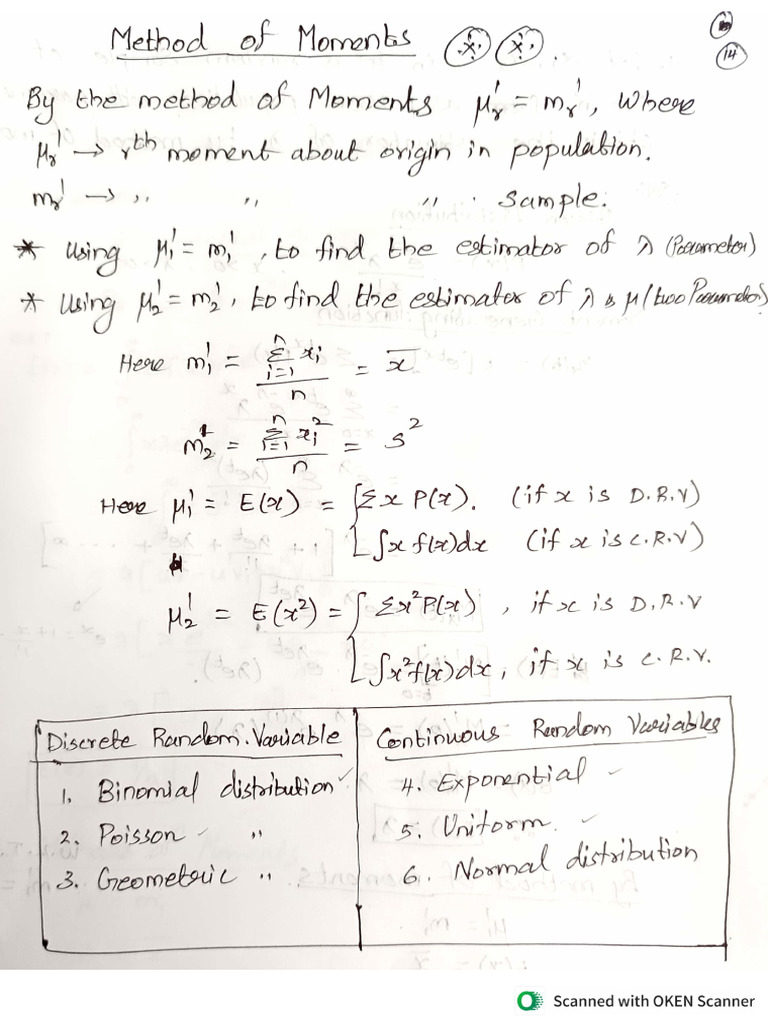 Method of Moments (x) (x)
14
By the method of Moments μr' = mr', where
μr' → rth moment about origin in population.
mr' → ,, ,, ,, . Sample.
* Using μ1' = m1', to find the estimator of λ (Parameter)
* Using μ2' = m2', to find the estimator of λ & μ (two Parameter)
Here m1' = Σ(i=1 to n) xi / n = x̄
m2' = Σ(i=1 to n) xi² / n = s²
Here μ1' = E(x) = { Σx P(x). (if x is D.R.V)
∫x f(x)dx (if x is C.R.V)
μ2' = E(x²) = { Σx²P(x) , if x is D.R.V
∫x²f(x)dx, if x is C.R.V.
Discrete Random.Variable
1. Binomial distribution ✓
2. Poisson ✓ ,,
3. Geometric ,,
Continuous Random Variables
4. Exponential ✓
5. Uniform. ✓
6. Normal distribution
Scanned with OKEN Scanner